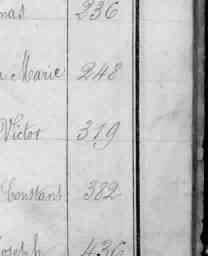 mas 236
a Marie 248
Victor 319
Constant 382
Joseph 436